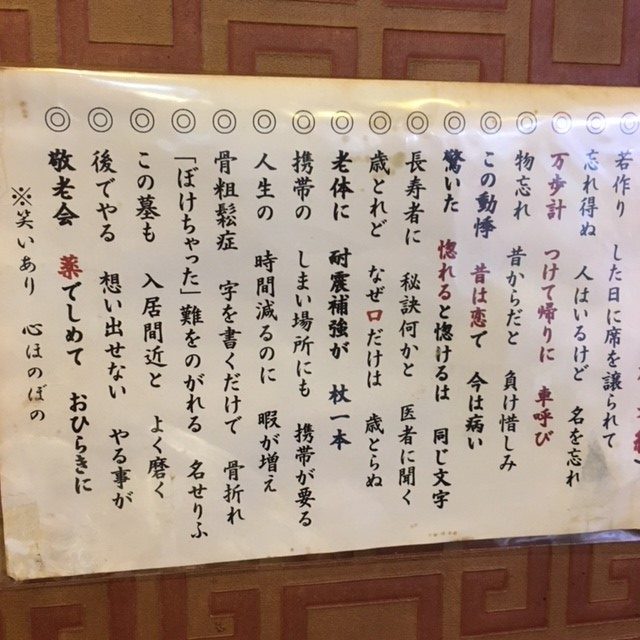 ◎ 若作り した日に席を譲られて
◎ 忘れ得ぬ 人はいるけど 名を忘れ
◎ 万歩計 つけて帰りに 車呼び
◎ 物忘れ 昔からだと 負け惜しみ
◎ この動悸 昔は恋で 今は病い
◎ 驚いた 惚れると惚けるは 同じ文字
◎ 長寿者に 秘訣何かと 医者に聞く
◎ 歳とれど なぜ口だけは 歳とらぬ
◎ 老体に 耐震補強が 杖一本
◎ 携帯の しまい場所にも 携帯が要る
◎ 人生の 時間減るのに 暇が増え
◎ 骨粗鬆症 字を書くだけで 骨折れ
◎ 「ぼけちゃった」難をのがれる 名せりふ
◎ この墓も 入居間近と よく磨く
◎ 後でやる 想い出せない やる事が
◎ 敬老会 薬でしめて おひらきに
※笑いあり 心ほのぼの